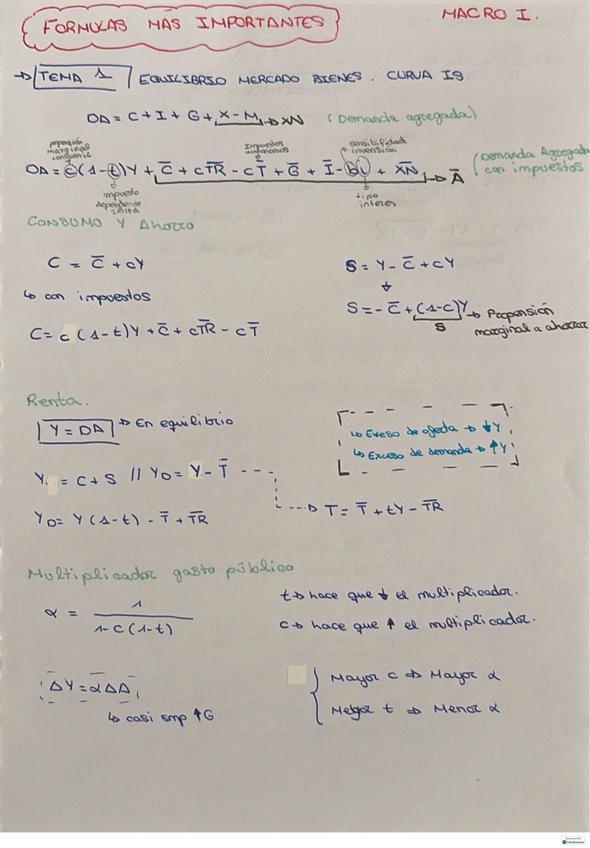 FORMULAS MÁS IMPORTANTES
MACRO I.
→ TEMA 1 EQUILIBRIO MERCADO BIENES. CURVA IS
DA = C + I + G + X - M → XN (Demanda agregada)
propensión marginal consumir
Impuestos autónomos
sensibilidad inversión
DA = c(1-t)Y + C̅ + cT̅R̅ - cT̅ + G̅ + I̅ - bi + X̅N̅ → A̅ (Demanda Agregada con impuestos
impuesto dependiende renta
tipo interes
CONSUMO Y Ahorro
C = C̅ + cY
S = Y - C̅ + cY
↳ con impuestos
↓
S = - C̅ + (1-c)Y → Propensión marginal a ahorrar
s
C = c (1-t)Y + C̅ + cT̅R̅ - cT̅
Renta.
Y = DA → En equilibrio
↳ Exeso de ofeda → ↓Y
↳ Exceso de demanda → ↑Y
Y = C + S // YD = Y - T̅
→ T = T̅ + tY - T̅R̅
YD = Y (1-t) - T̅ + T̅R̅
Multiplicador gasto público
α = 1 / 1-c(1-t)
t → hace que ↓ el multiplicador.
c → hace que ↑ el multiplicador.
ΔY = αΔA̅
↳ casi smp ↑G
Mayor c ⇒ Mayor α
t ⇒ Menor α